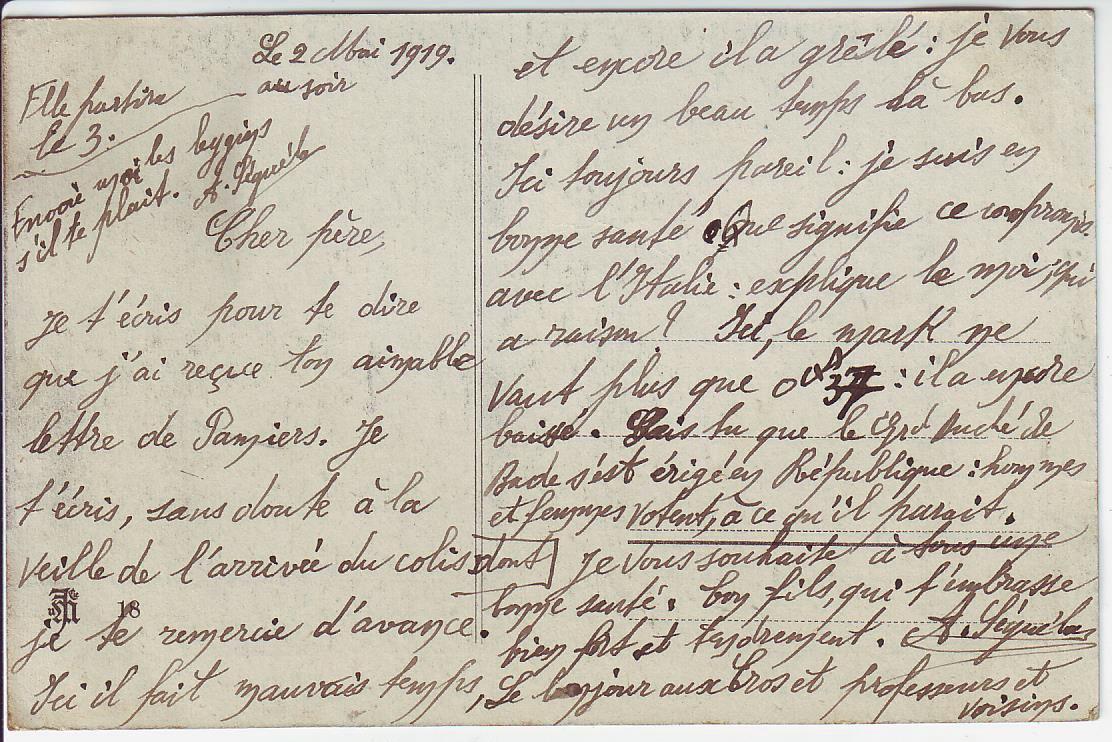 Le 2 Mai 1919.
au soir
Elle partira
le 3.
Envoie moi les
s'il te plait. A. Séguéla
Cher père,
Je t'écris pour te dire
que j'ai reçue ton aimable
lettre de Pamiers. Je
t'écris, sans doute à la
veille de l'arrivée du colis dont
18
je te remercie d'avance.
Ici il fait mauvais temps,
et encore il a grêlé : je vous
désire un beau temps là bas.
Ici toujours pareil : je suis en
bonne santé Que signifie ce compromis
avec l'Italie : explique le moi, qui
a raison ? Ici, le mark ne
vaut plus que 0 37 : il a encore
baissé. Sais tu que le Grd Duché de
Bade s'est érigé en République : hommes
et femmes votent, à ce qu'il parait.
Je vous souhaite à tous une
bonne santé. Ton fils, qui t'embrasse
bien fort et tendrement. A. Séguéla
Le bonjour aux Cros et professeurs et
voisins.